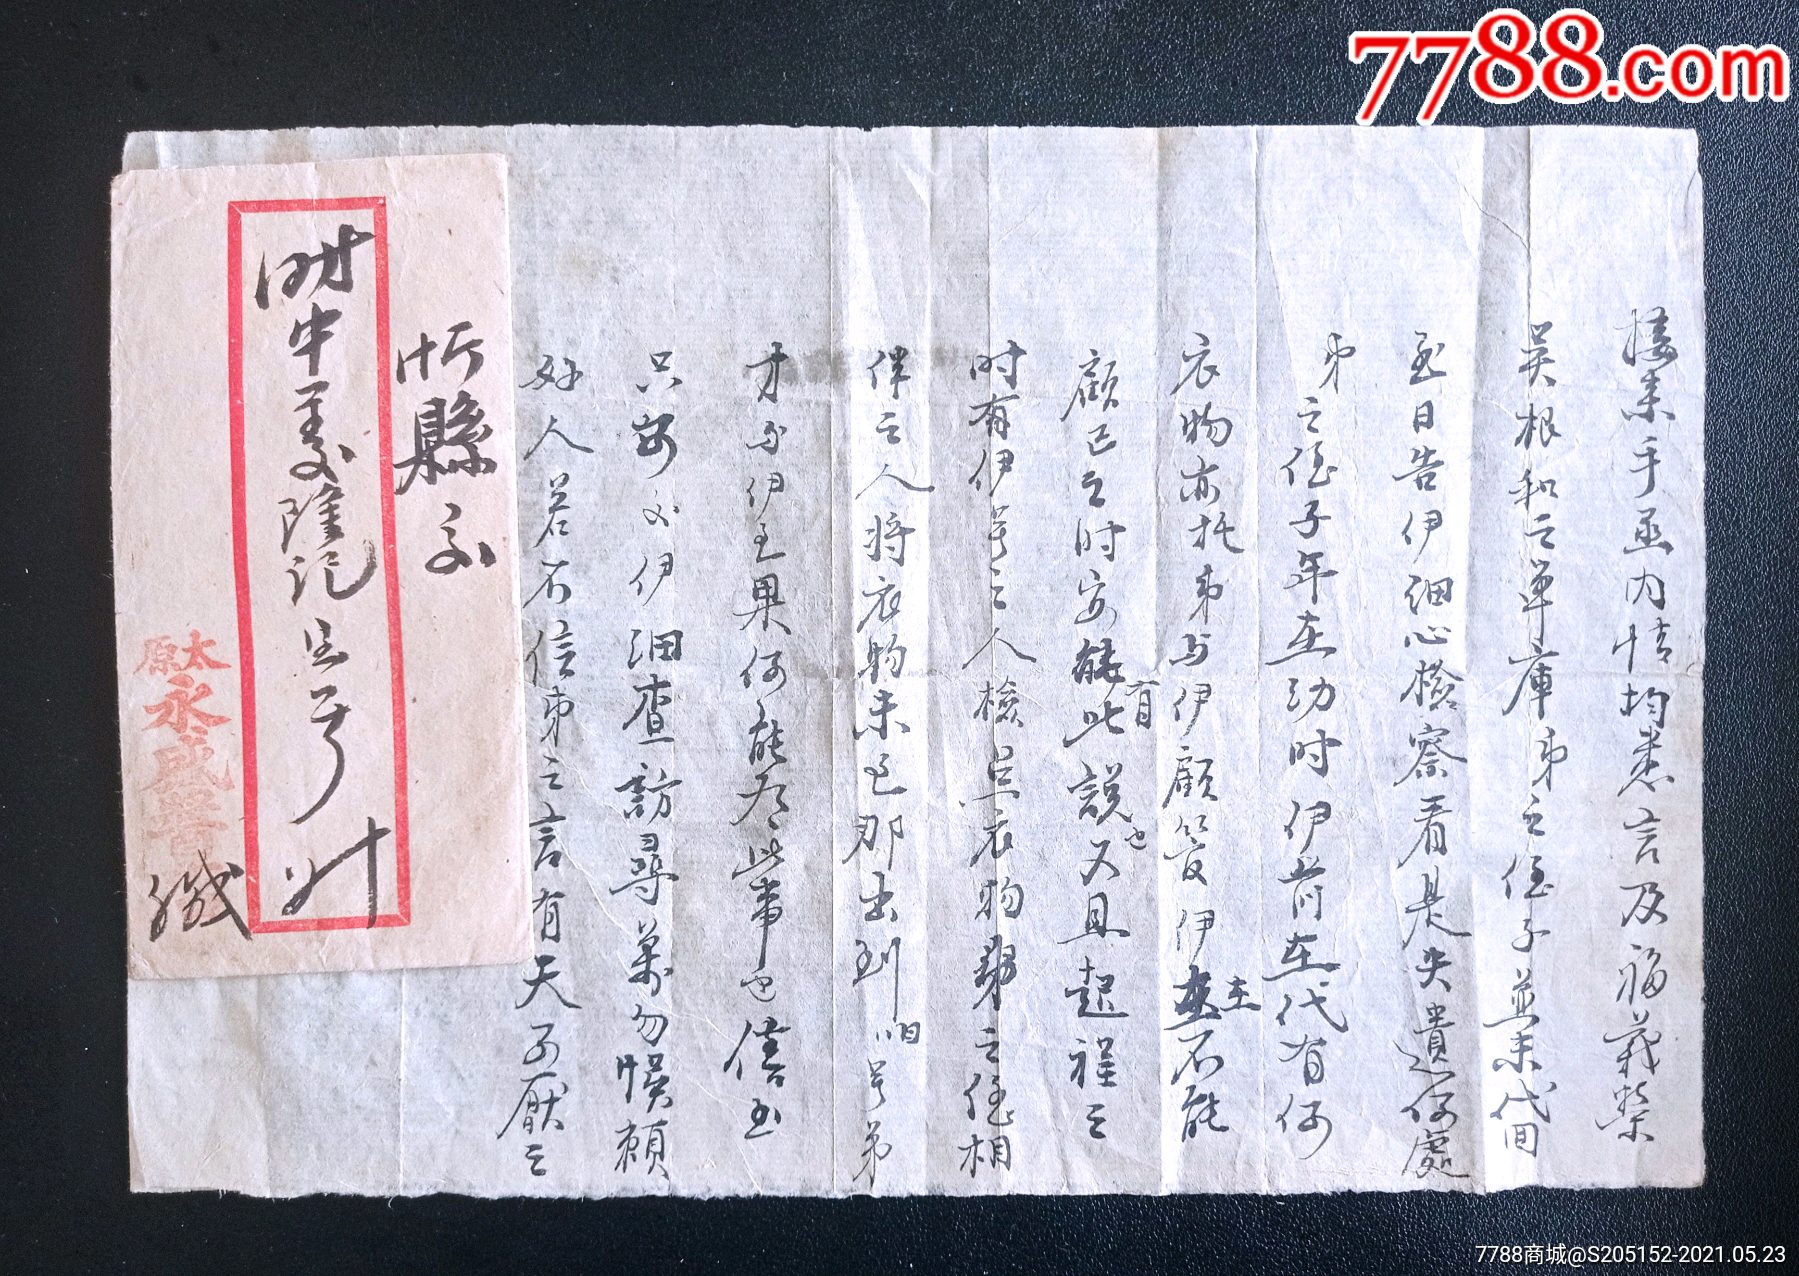 7788.com
接来手函内情均悉言及福義荣
吴根和之单庫弟之侄子並未代间
至日告伊细心檢察看是失遺何處
弟之侄子年在幼时伊前在代有何
衣物亦托弟与伊顧管伊在不能
顧已之时安能有此説也又且起程之
时有伊号之人檢点衣物弟之侄相
伴之人将衣物未已那出到咱号弟
才与伊至果何能有此事也信至
只安必伊细查訪尋萬勿悞賴
好人若不信弟之言有天可厭之
忻縣交
财中義隆記宝号
缄
太原
永盛
7788商城@S205152-2021.05.23